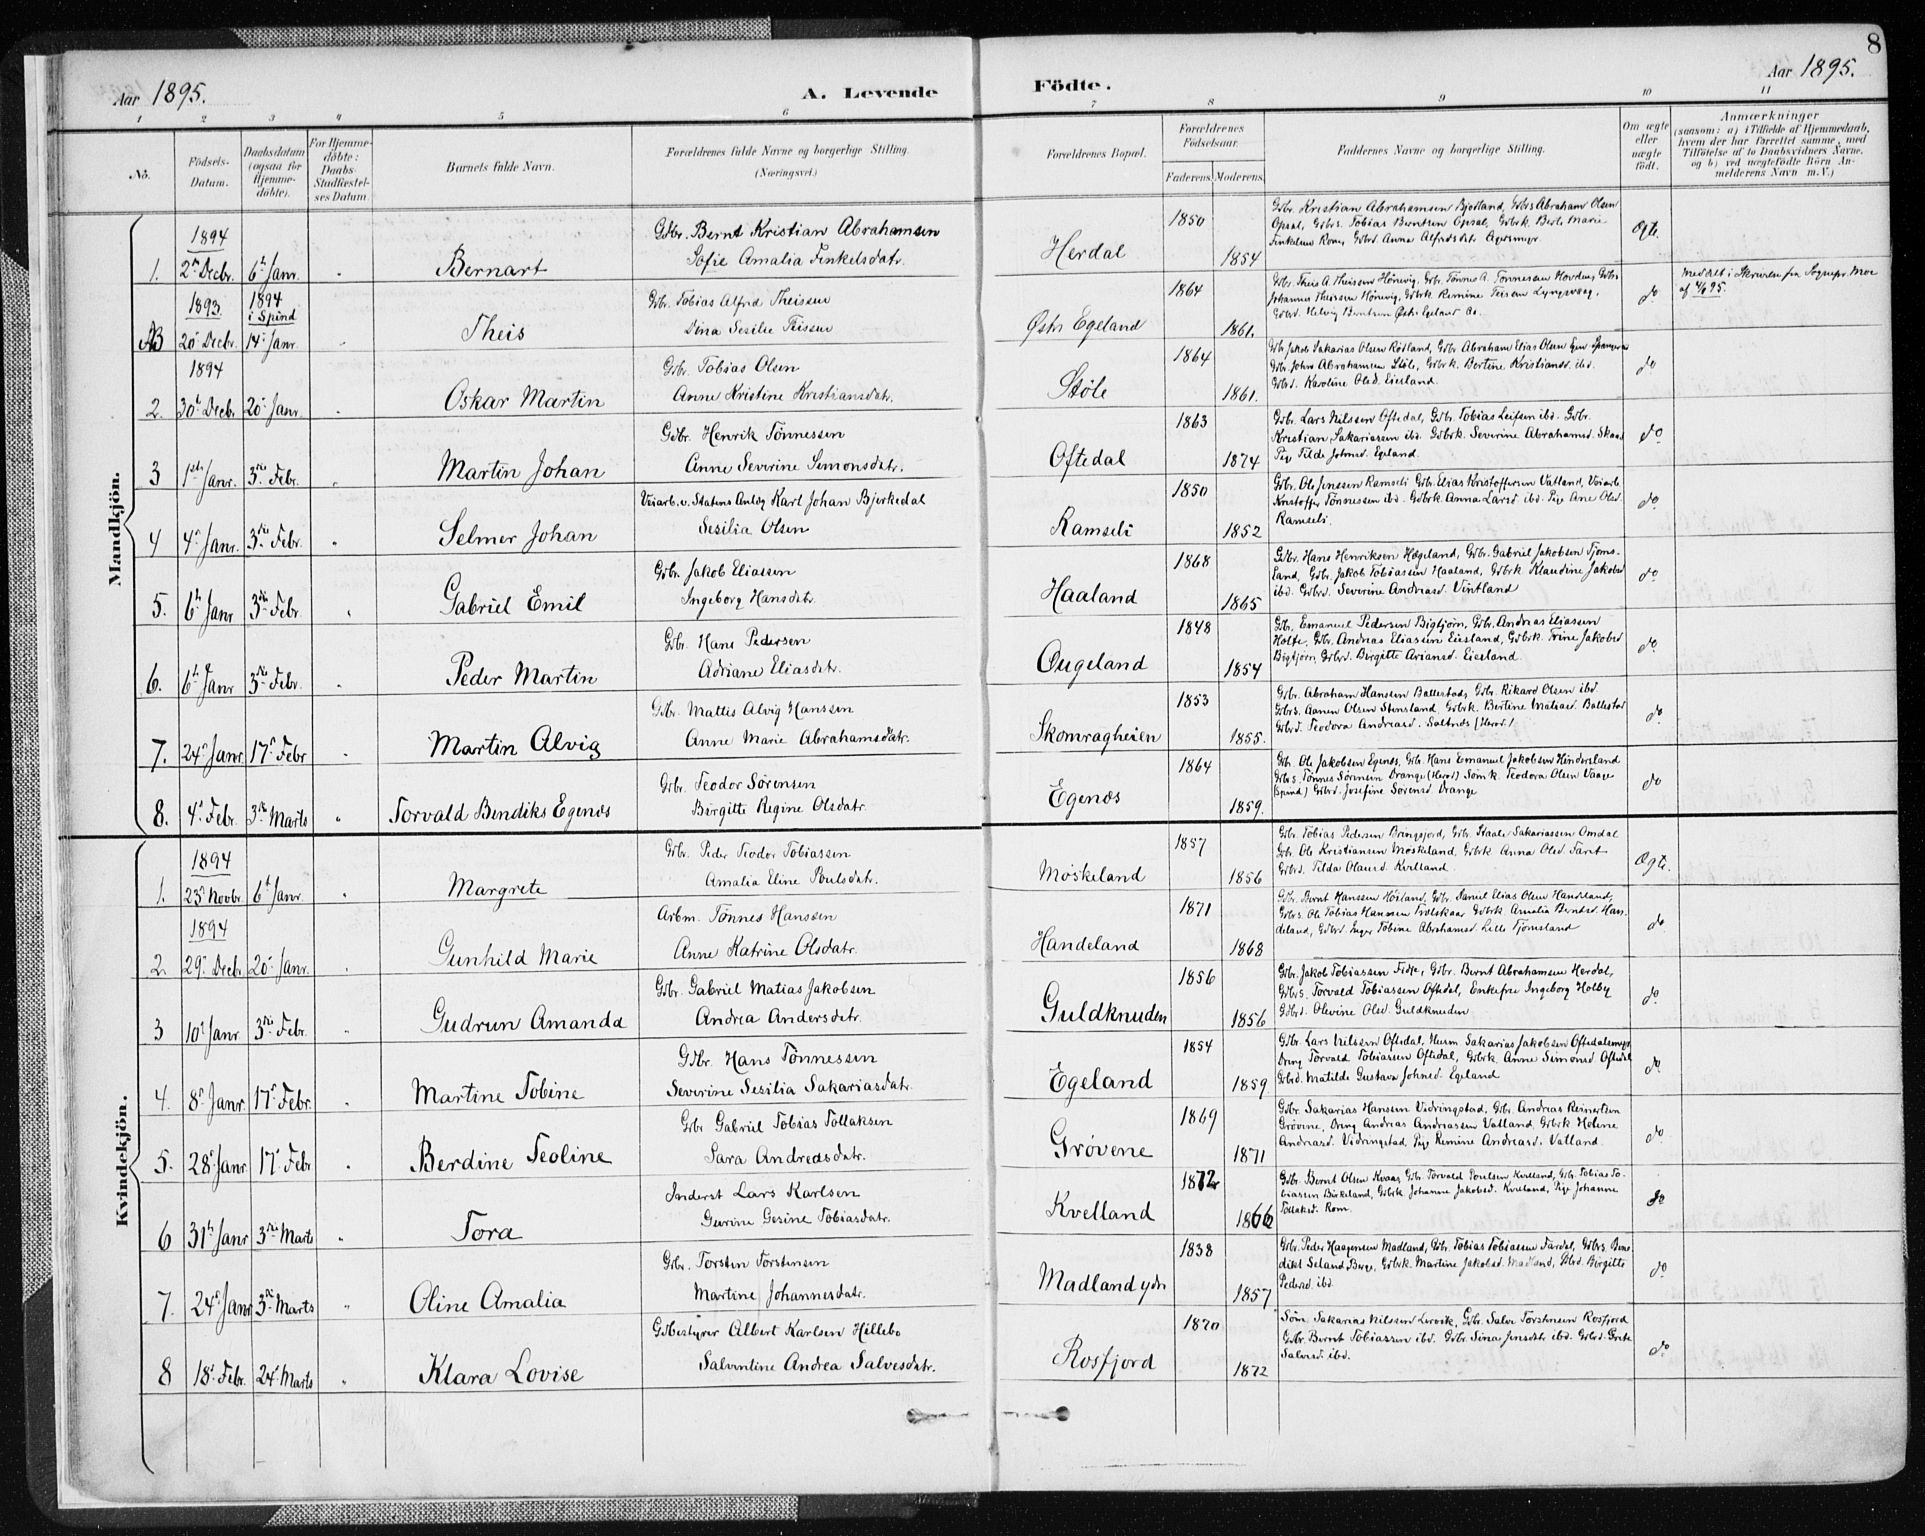 8
Aar 1895.
A. Levende
Födte.
Aar 1895.
1 2 3 4 5 6 7 8 9 10 11
No.
Födsels-Datum.
Daabsdatum (ogsaa for Hjemmedöbte).
For Hjemmedöbte: Daabs-Stadfæstelses Datum.
Barnets fulde Navn.
Forældrenes fulde Navne og borgerlige Stilling. (Næringsvei.)
Forældrenes Bopæl.
Forældrenes Födselsaar.
Faderens. Moderens.
Faddernes Navne og borgerlige Stilling.
Om ægte eller uægte födt.
Anmærkninger
(saasom: a) i Tilfælde af Hjemmedaab, hvem der har forrettet samme, med Tilföielse af to Daabsvidners Navne, og b) ved uægtefödte Börn Anmelderens Navn m.V.)
Mandkjön.
1894
1. 2n Decbr. 6t Janr. " Bernart
Gdbr. Bernt Kristian Abrahamsen
Sofie Amalia Finkelsdatr.
Herdal 1850 1854
Gdbr. Kristian Abrahamsen Bjotland, Gdbrs Abraham Olsen
Opsal, Gdbrs. Tobias Berntsen Opsal, Gdbrk. Berte Marie
Ægte.
1893 1894 i Spind
20 Decbr. 14 Janr. " Theis
Gbr. Tobias Alfred Theissen
Dina Sesilie Teissen
Østr Egeland 1864 1861.
Gbr. Theis A. Theissen Hönevig, Gbr. Tönnes A. Tönnessen
Johannes Theissen Hönevig, Gdbrk. Remine Teissen Lyngsvaag,
do
Meddelt i Skrivelse fra Sognepr Moe
af 4/6 95.
1894
2. 30t Decbr 20 Janr. " Oskar Martin
Gbr. Tobias Olsen
Anne Kristine Kristiansdatr.
Støle 1864 1861.
Gdbr. John Abrahamsen Støle, Gdbrk. Bertine Kristiansd. ibd.
Gdbrd. Karoline Olsd. Eiesland.
do
3 1ste Janr. 3die Febr. " Martin Johan
Gdbr. Henrik Tönnessen
Anne Severine Simonsdatr.
Oftedal 1863 1874
Gdbr. Lars Nilssen Oftedal, Gdbr Tobias Leifsen ibd. Gdbr.
Kristian Sakariassen ibd. Gdbrk. Severine Abrahamsd. Skaar
Pige Tilde Johnsd. Egeland.
do
4 4de Janr. 3die Febr. " Selmer Johan
Veiarb. v. Statens Anlæg Karl Johan Bjerkedal
Sesilia Olsen
Ramseli 1850 1852
Gdbr. Ole Jenssen Ramseli Gdbr. Elias Kristoffersen Vatland, Veiarb.
Kristoffer Tönnessen ibd. Gdbrk Anna Larsd ibd. Pige Ane Olsd.
Ramseli.
do
5. 6t Janr. 3die Febr. " Gabriel Emil
Gdbr. Jakob Eliassen
Ingeborg Hansdatr.
Haaland 1868 1865
Gdbr. Hans Henriksen Hægeland, Gdbr. Gabriel Jakobsen Tjoms-
land, Gdbr. Jakob Tobiassen Haaland, Gdbrk Klaudine Jakobsd
ibd. Gdbrd. Severine Andreasd. Vintland
do
6. 6t Janr 3die Febr. " Peder Martin
Gdbr. Hans Pedersen
Adriane Eliasdatr.
Øugeland 1848 1854
Gdbr. Emanuel Pedersen Bigtjörn, Gdbr. Andreas Eliassen
Holte, Gdbr. Andreas Eliassen Eiesland, Gdbrk. Trine Jakobsd
Bigtjörn, Gdbrd. Birgitte Ariansd. Eiesland.
do
7. 24de Janr. 17de Febr " Martin Alvig
Gdbr. Mattis Alvig Hanssen
Anne Marie Abrahamsdatr.
Skomragheien 1853 1855.
Gdbr. Abraham Hansen Ballestad, Gdbr. Rikard Olsen ibd
Gdbrs. Aanen Olsen Stensland, Gdbrk. Bertine Matiasd. Ballestad
Gdbrd. Teodora Andreasd. Saltnes (Herad.)
do
8. 4de Febr. 3die Marts " Torvald Bendiks Egenæs
Gdbr. Teodor Sörensen
Birgitte Regine Olsdatr.
Egenæs 1864 1859.
Gbr. Ole Jakobsen Egenæs, Gbr. Hans Emanuel Jakobsen Hindersland
Gdbrs. Tönnes Sörensen Drange (Herad) Sömk. Teodora Olsen Vaage
(Spind) Gdbrd. Josefine Sörensd Drange
do
Kvindekjön.
1894
1. 23de Novbr. 6t Janr. " Margrete
Gdbr. Peder Teodor Tobiassen
Amalia Eline Poulsdatr.
Møskeland 1857 1856
Gdbr. Tobias Pedersen Bringsjord, Gdbr. Staale Sakariassen Omdal
Gdbr. Ole Kristiansen Møskeland, Gdbrk Anna Olsd. Faret
Gdbrd. Tilda Olausd. Kvelland.
Ægte.
1894
2. 29de Decbr. 20 Janr. " Gunhild Marie
Arbm. Tönnes Hanssen
Anne Katrine Olsdatr.
Handeland 1871 1868
Gdbr. Bernt Hanssen Höiland, Gdbr. Daniel Elias Olsen Handeland,
Gdbrs. Ole Tobias Hanssen Trælskaar Gdbrk Amalia Berntsd. Han-
deland, Gdbrd. Inger Tobine Abrahamsd. Lille Tjomsland
do
3 10de Janr. 3die Febr. " Gudrun Amanda
Gdbr. Gabriel Matias Jakobsen
Andrea Andersdatr.
Guldknuden 1856 1856
Gdbr. Jakob Tobiassen Fidje, Gdbr. Bernt Abrahamsen Herdal,
Gdbrs. Torvald Tobiassen Oftedal, Enkefru Ingeborg Holby
Gdbrd. Olevine Olsd. Guldknuden
do
4. 8de Janr. 17de Febr. " Martine Tobine
Gdbr. Hans Tönnessen
Severine Sesilia Sakariasdatr.
Egeland 1854 1859
Gdbr. Lars Nilssen Oftedal, Husm Sakarias Jakobsen Oftedalsmyr
Dreng Torvald Tobiassen Oftedal, Gdbrk. Anne Simonsd Oftedal
Gdbrd. Matilde Gustava Johnsd. Egeland
do
5. 28de Janr. 17de Febr " Berdine Teoline
Gdbr Gabriel Tobias Tollaksen
Sara Andreasdatr.
Grøvene 1869 1871
Gdbr. Sakarias Hanssen Vidringstad, Gdbr. Andreas Reinertsen
Grövene, Dreng Andreas Andreassen Vatland, Gdbrk Helene
Andreasd. Vidringstad, Pige Remine Andreasd. Vatland.
do
6 31te Janr 3die Marts " Tora
Inderst Lars Karlsen
Gurine Gesine Tobiasdatr.
Kvelland 1872 1866
Gdbr. Bernt Olsen Kvaas, Gdbr. Torvald Poulsen Kvelland, Gdbr. Tobias To-
biassen Birkeland, Gdbrk Johanne Jakobsd. Kvelland, Pige Johanne
Tollaksd. Rom.
do
7. 24de Janr 3die Marts " Oline Amalia
Gdbr. Torsten Torstensen
Martine Johannesdatr.
Madland ydr 1838 1857
Gdbr. Peder Haagensen Madland, Gdbr. Tobias Tobiassen Fardal, Gdbrs. Bene-
dikt Seland Berge, Gdbrk. Martine Jakobsd. Madland, Gdbrd. Birgitte
Pedersd. ibd.
do
8 18de Febr. 24de Marts " Klara Lovise
Gdbestyrer Albert Karlsen Hillebo
Salventine Andrea Salvesdatr.
Rosfjord 1870 1872
Söm. Sakarias Nilssen Lervik, Gdbr. Salve Torstensen Rosfjord
Gdbr. Bernt Tobiassen ibd. Gdbr. Sina Jensdtr ibd. Gdbrd. Grete
Salvesd. ibd.
do